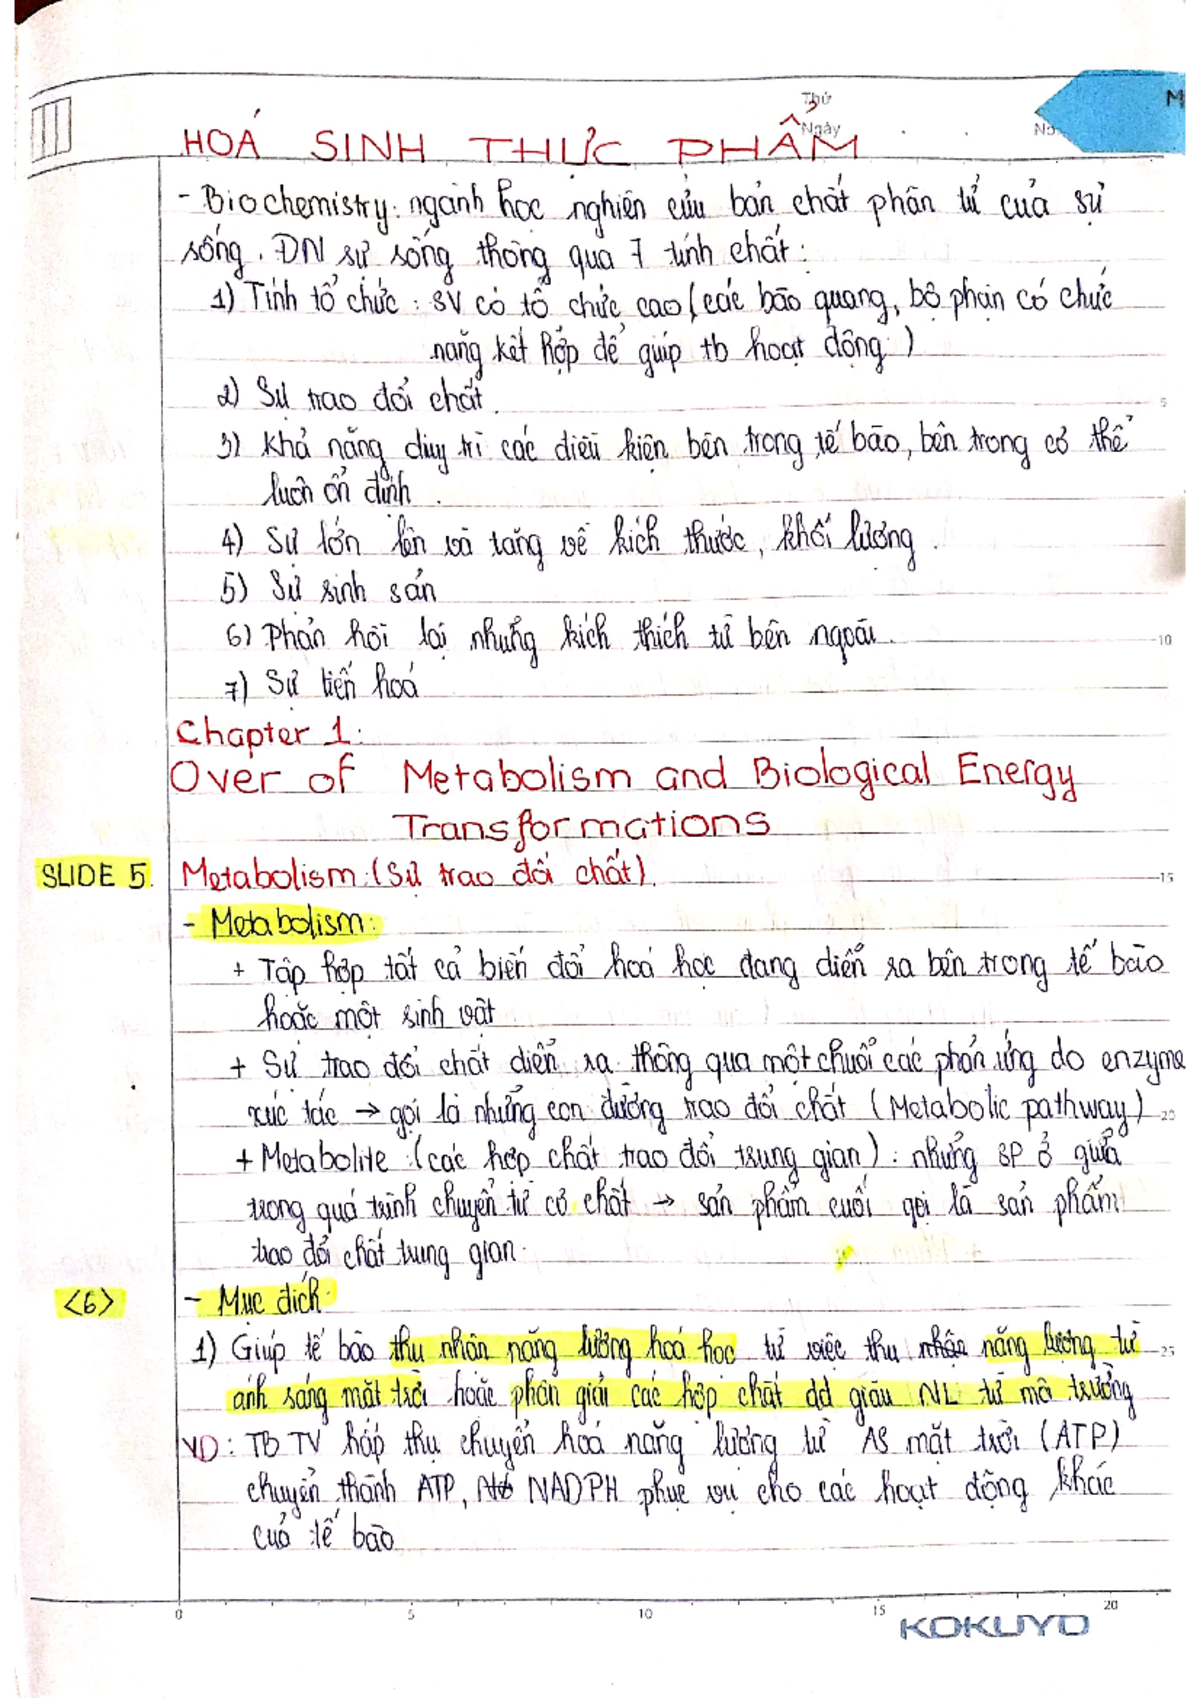 Thứ
Ngày
No
M
HOÁ SINH THỰC PHẨM
- Biochemistry: ngành học nghiên cứu bản chất phân tử của sự
sống. ĐN sự sống thông qua 7 tính chất:
1) Tính tổ chức: SV có tổ chức cao (các bào quang, bộ phận có chức
năng kết hợp để giúp tb hoạt động)
2) Sự trao đổi chất.
5
3) Khả năng duy trì các điều kiện bên trong tế bào, bên trong cơ thể
luôn ổn định.
4) Sự lớn lên và tăng về kích thước, khối lượng.
5) Sự sinh sản
6) Phản hồi lại những kích thích từ bên ngoài.
10
7) Sự tiến hoá
Chapter 1:
Over of Metabolism and Biological Energy
Transformations
SLIDE 5. Metabolism: (Sự trao đổi chất).
15
- Metabolism:
+ Tập hợp tất cả biến đổi hoá học đang diễn ra bên trong tế bào
hoặc một sinh vật
+ Sự trao đổi chất diễn ra thông qua một chuỗi các phản ứng do enzyme
xúc tác → gọi là những con đường trao đổi chất (Metabolic pathway)
20
+ Metabolite: (các hợp chất trao đổi trung gian): những SP ở giữa
trong quá trình chuyển từ cơ chất → sản phẩm cuối gọi là sản phẩm
trao đổi chất trung gian.
<6> - Mục đích:
1) Giúp tế bào thu nhân năng lượng hoá học từ việc thu nhận năng lượng từ
25
ánh sáng mặt trời hoặc phân giải các hợp chất dd giàu NL từ môi trường
VD: TB TV hấp thụ chuyển hoá năng lượng từ AS mặt trời (ATP)
chuyển thành ATP, NADPH phục vụ cho các hoạt động khác
của tế bào
0 5 10 15 20
KOKUYO